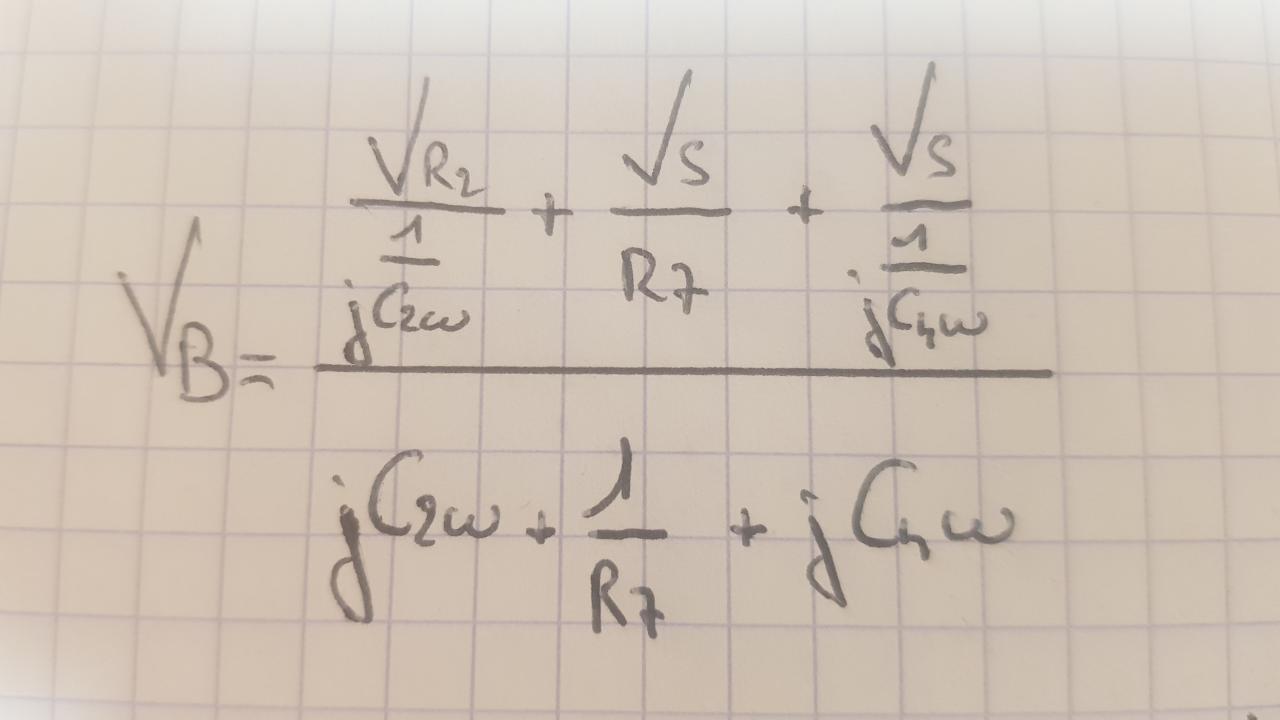 V_B = \frac{\frac{V_{R_2}}{\frac{1}{jC_2\omega}} + \frac{V_S}{R_7} + \frac{V_S}{\frac{1}{jC_4\omega}}}{jC_2\omega + \frac{1}{R_7} + jC_4\omega}